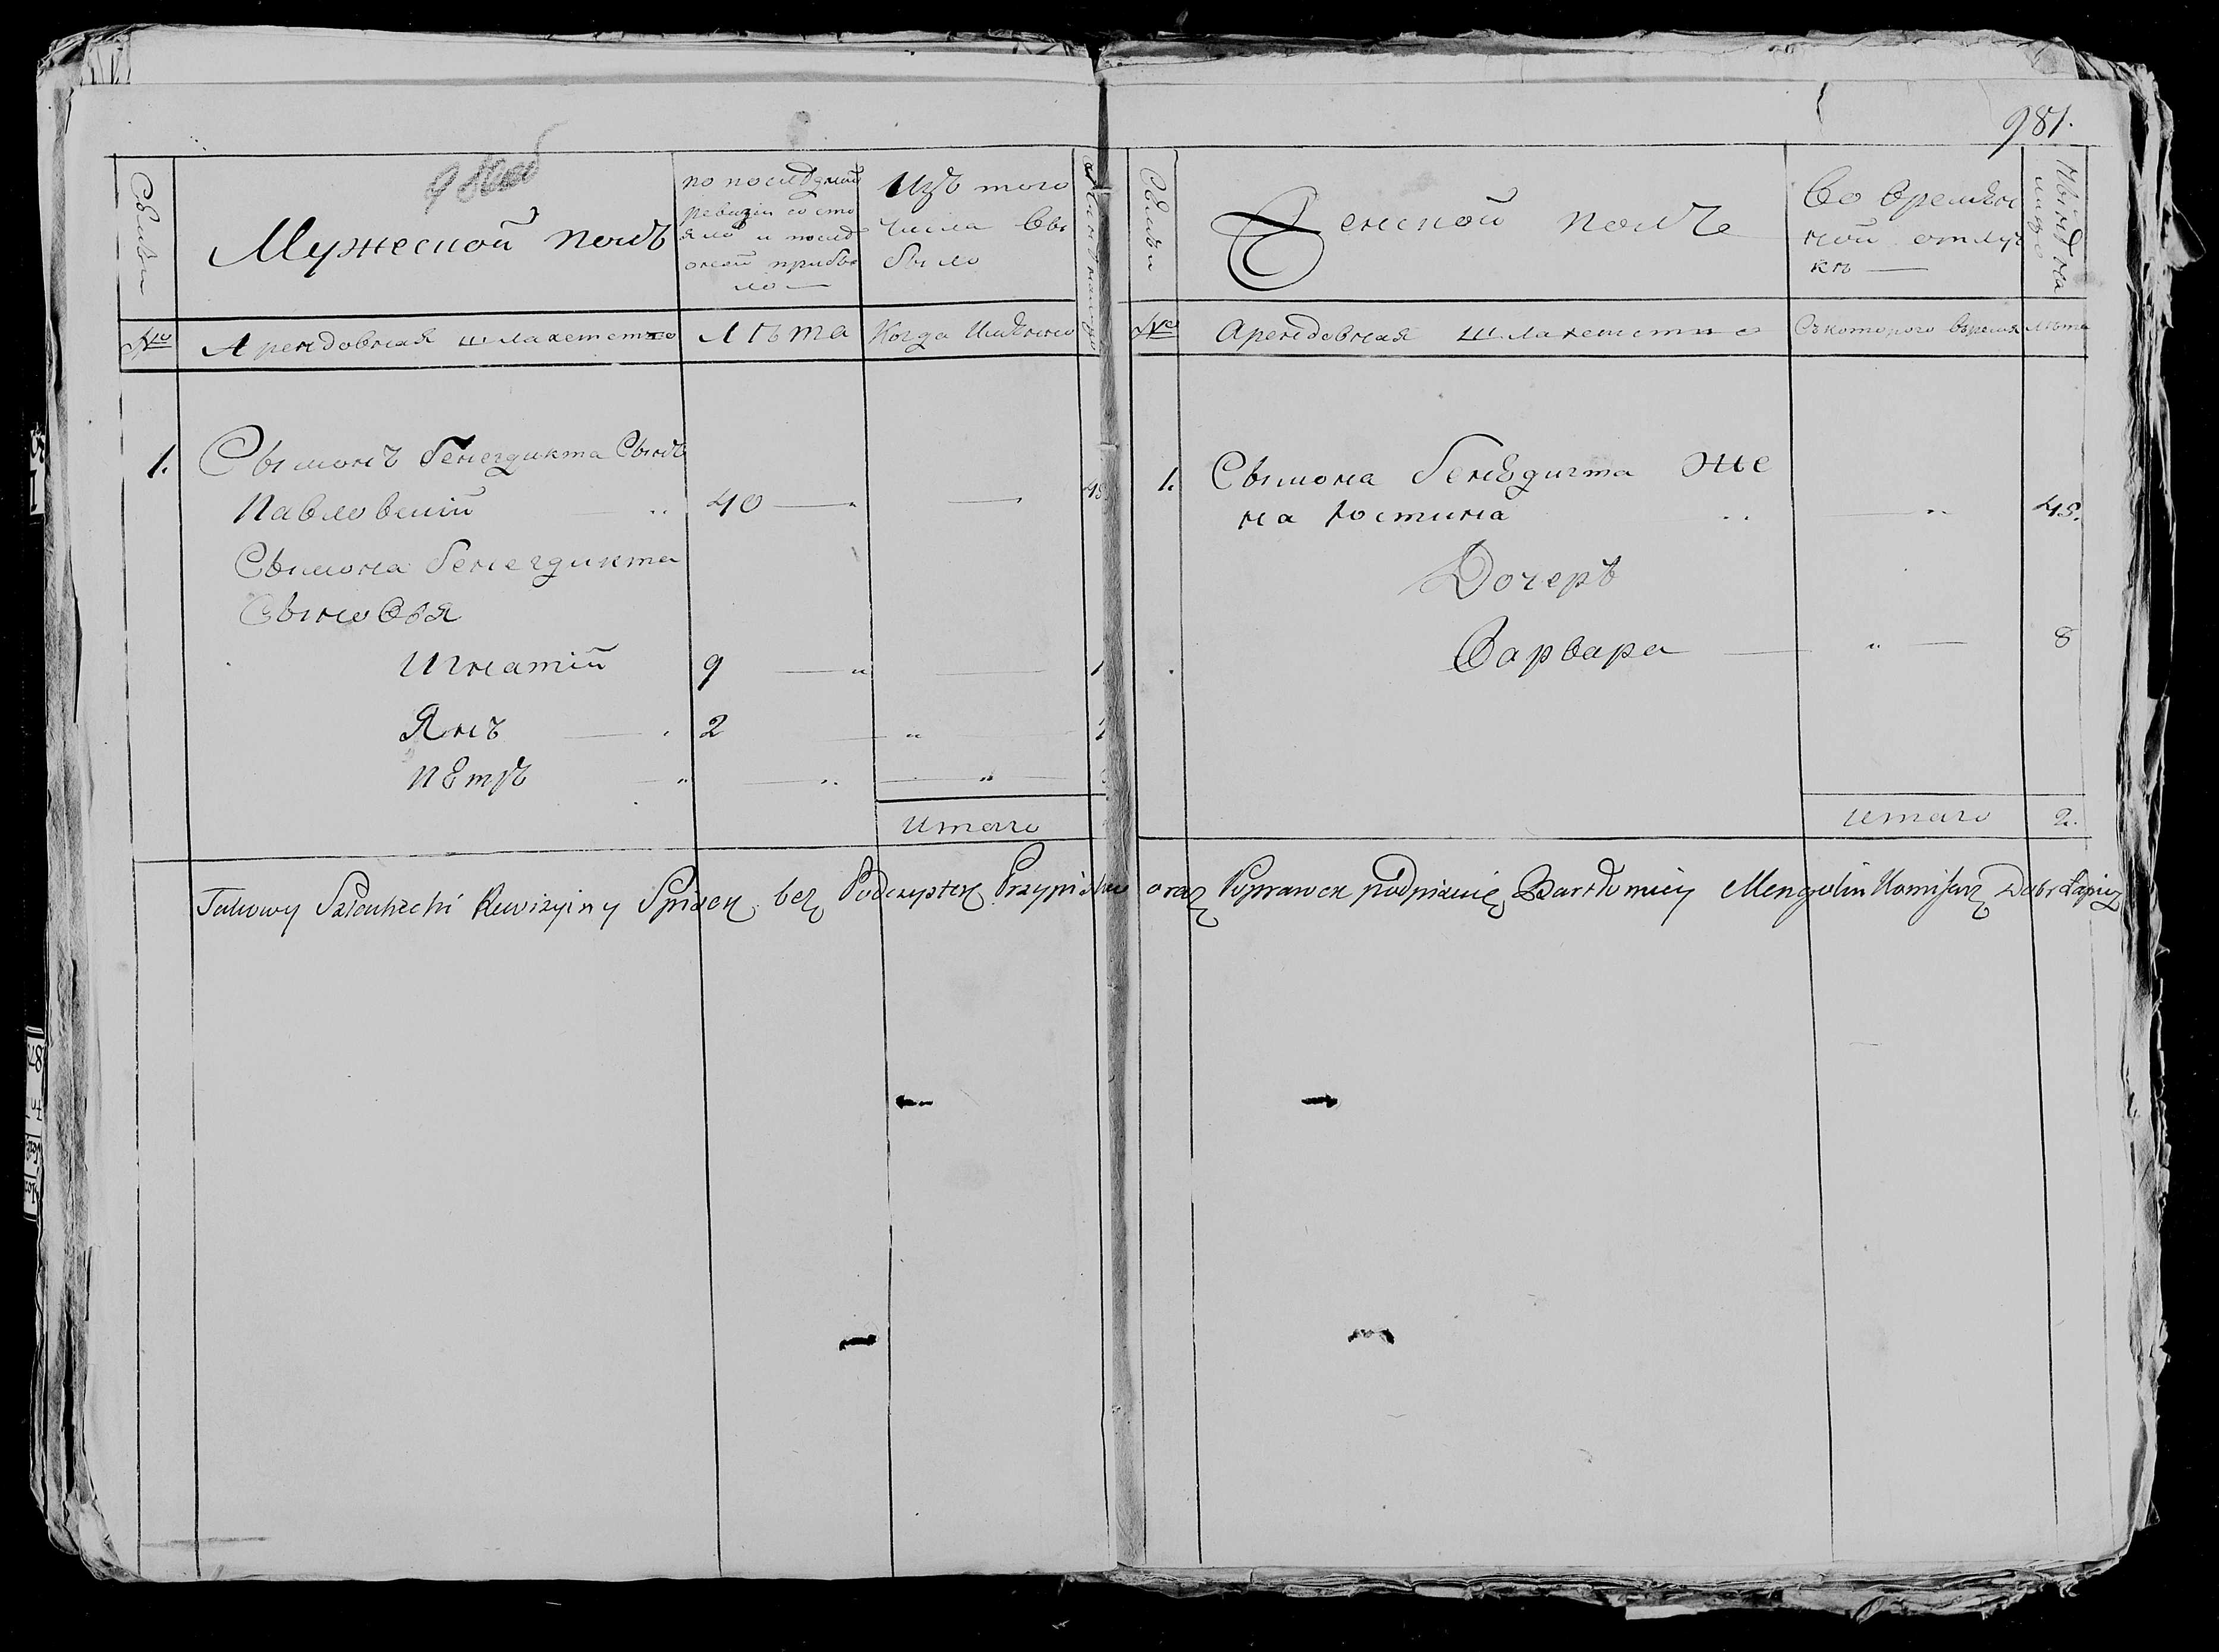 981.
Сѣмьи
Мужеской полъ
по последней
ревизіи состо
яло и послѣ
оной прибы
ло —
Изъ того
числа вы
было
№
Арендовная шляхетство
Лѣта
Когда Имѣнно
1. Сымонъ Бенедикта Сынъ
Павловскій 40 —
Сымона Бенедикта
Сыновья
Игнатій 9
Янъ 2
Пётръ
Итого
Сѣмьи
Женской полъ
Во времѣн
ной отлуч
кѣ —
Нынѣ на
лицо
№
Арендовная шляхетство
Съ которого времѣя
Лѣта
1. Сымона Бенѣдикта же
на Юстина 45.
Дочеръ
Варвара 8
Итого 2.
Takowy Szlachecki Rewizyiny Spisek bez Podczystek Przypisków oraz Poprawek podpisuię Bartłomiey Mengolin Komisarz Dobr Łapicz